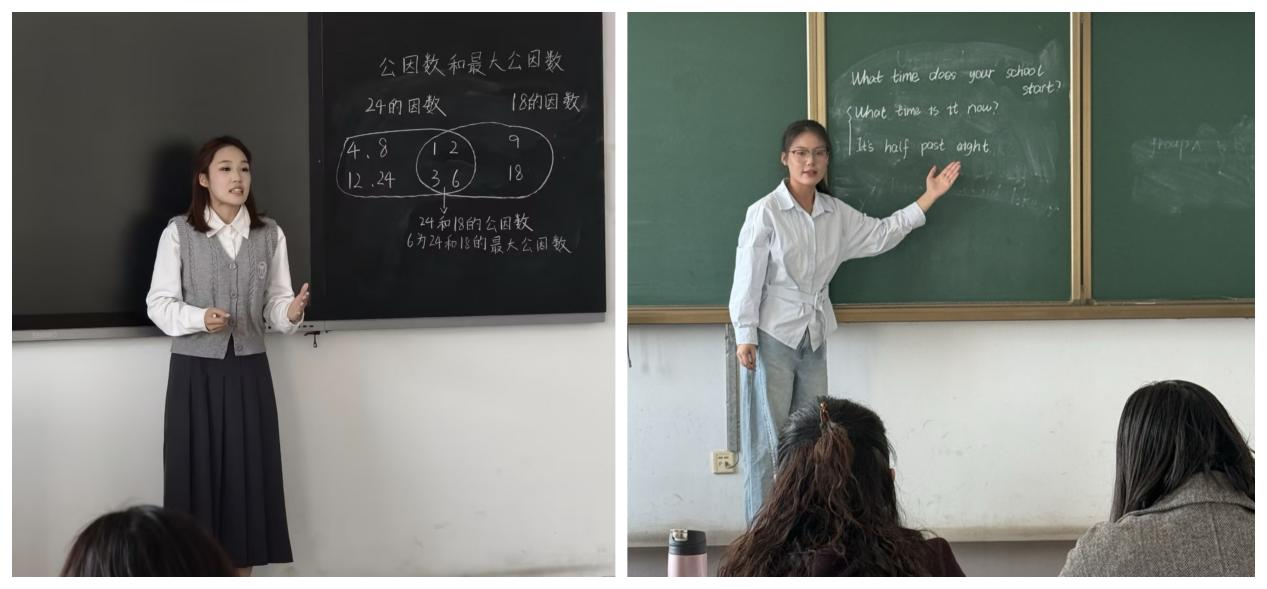 公因数和最大公因数
24的因数 18的因数
4、8 1 2 9
12、24 3 6 18
24和18的公因数
6为24和18的最大公因数
What time does your school
start?
What time is it now?
It's half past eight